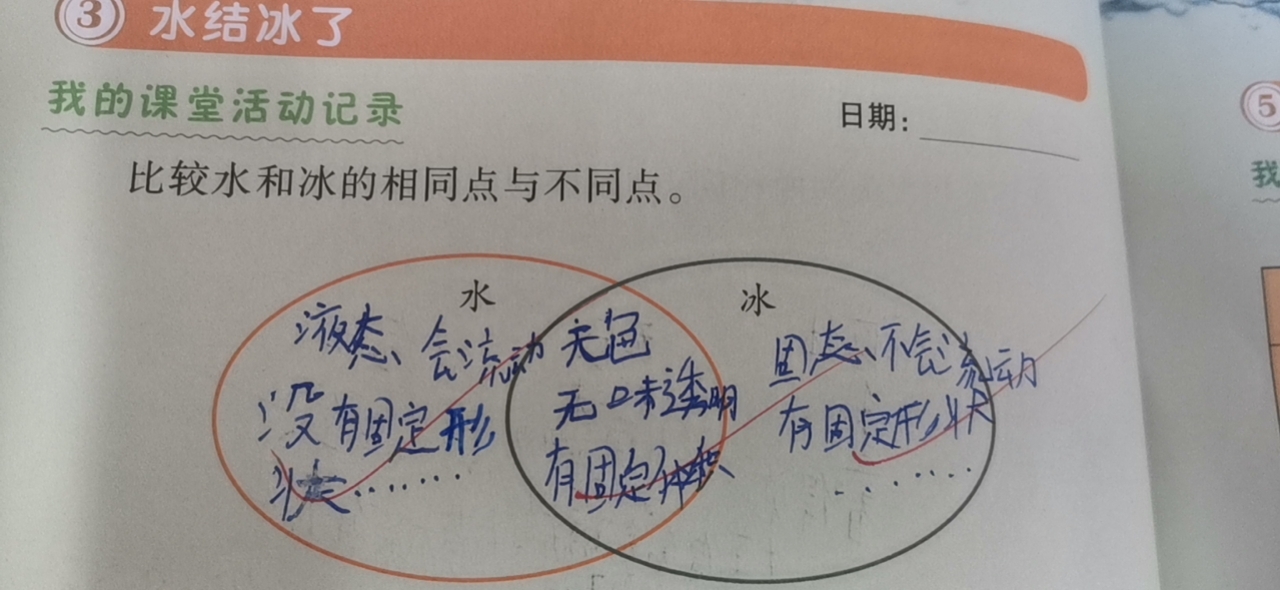 ③ 水结冰了
我的课堂活动记录
日期：
比较水和冰的相同点与不同点。
水
液态、会流动
没有固定形
状……
无色
无味透明
有固定体积
冰
固态、不会流动
有固定形状
……
⑤
我